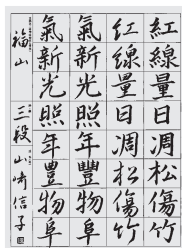 紅線量日凋松傷竹
红線量日凋松傷竹
氣新光照年豐物阜
氣新光照年豊物阜
福山 三段 山崎信子